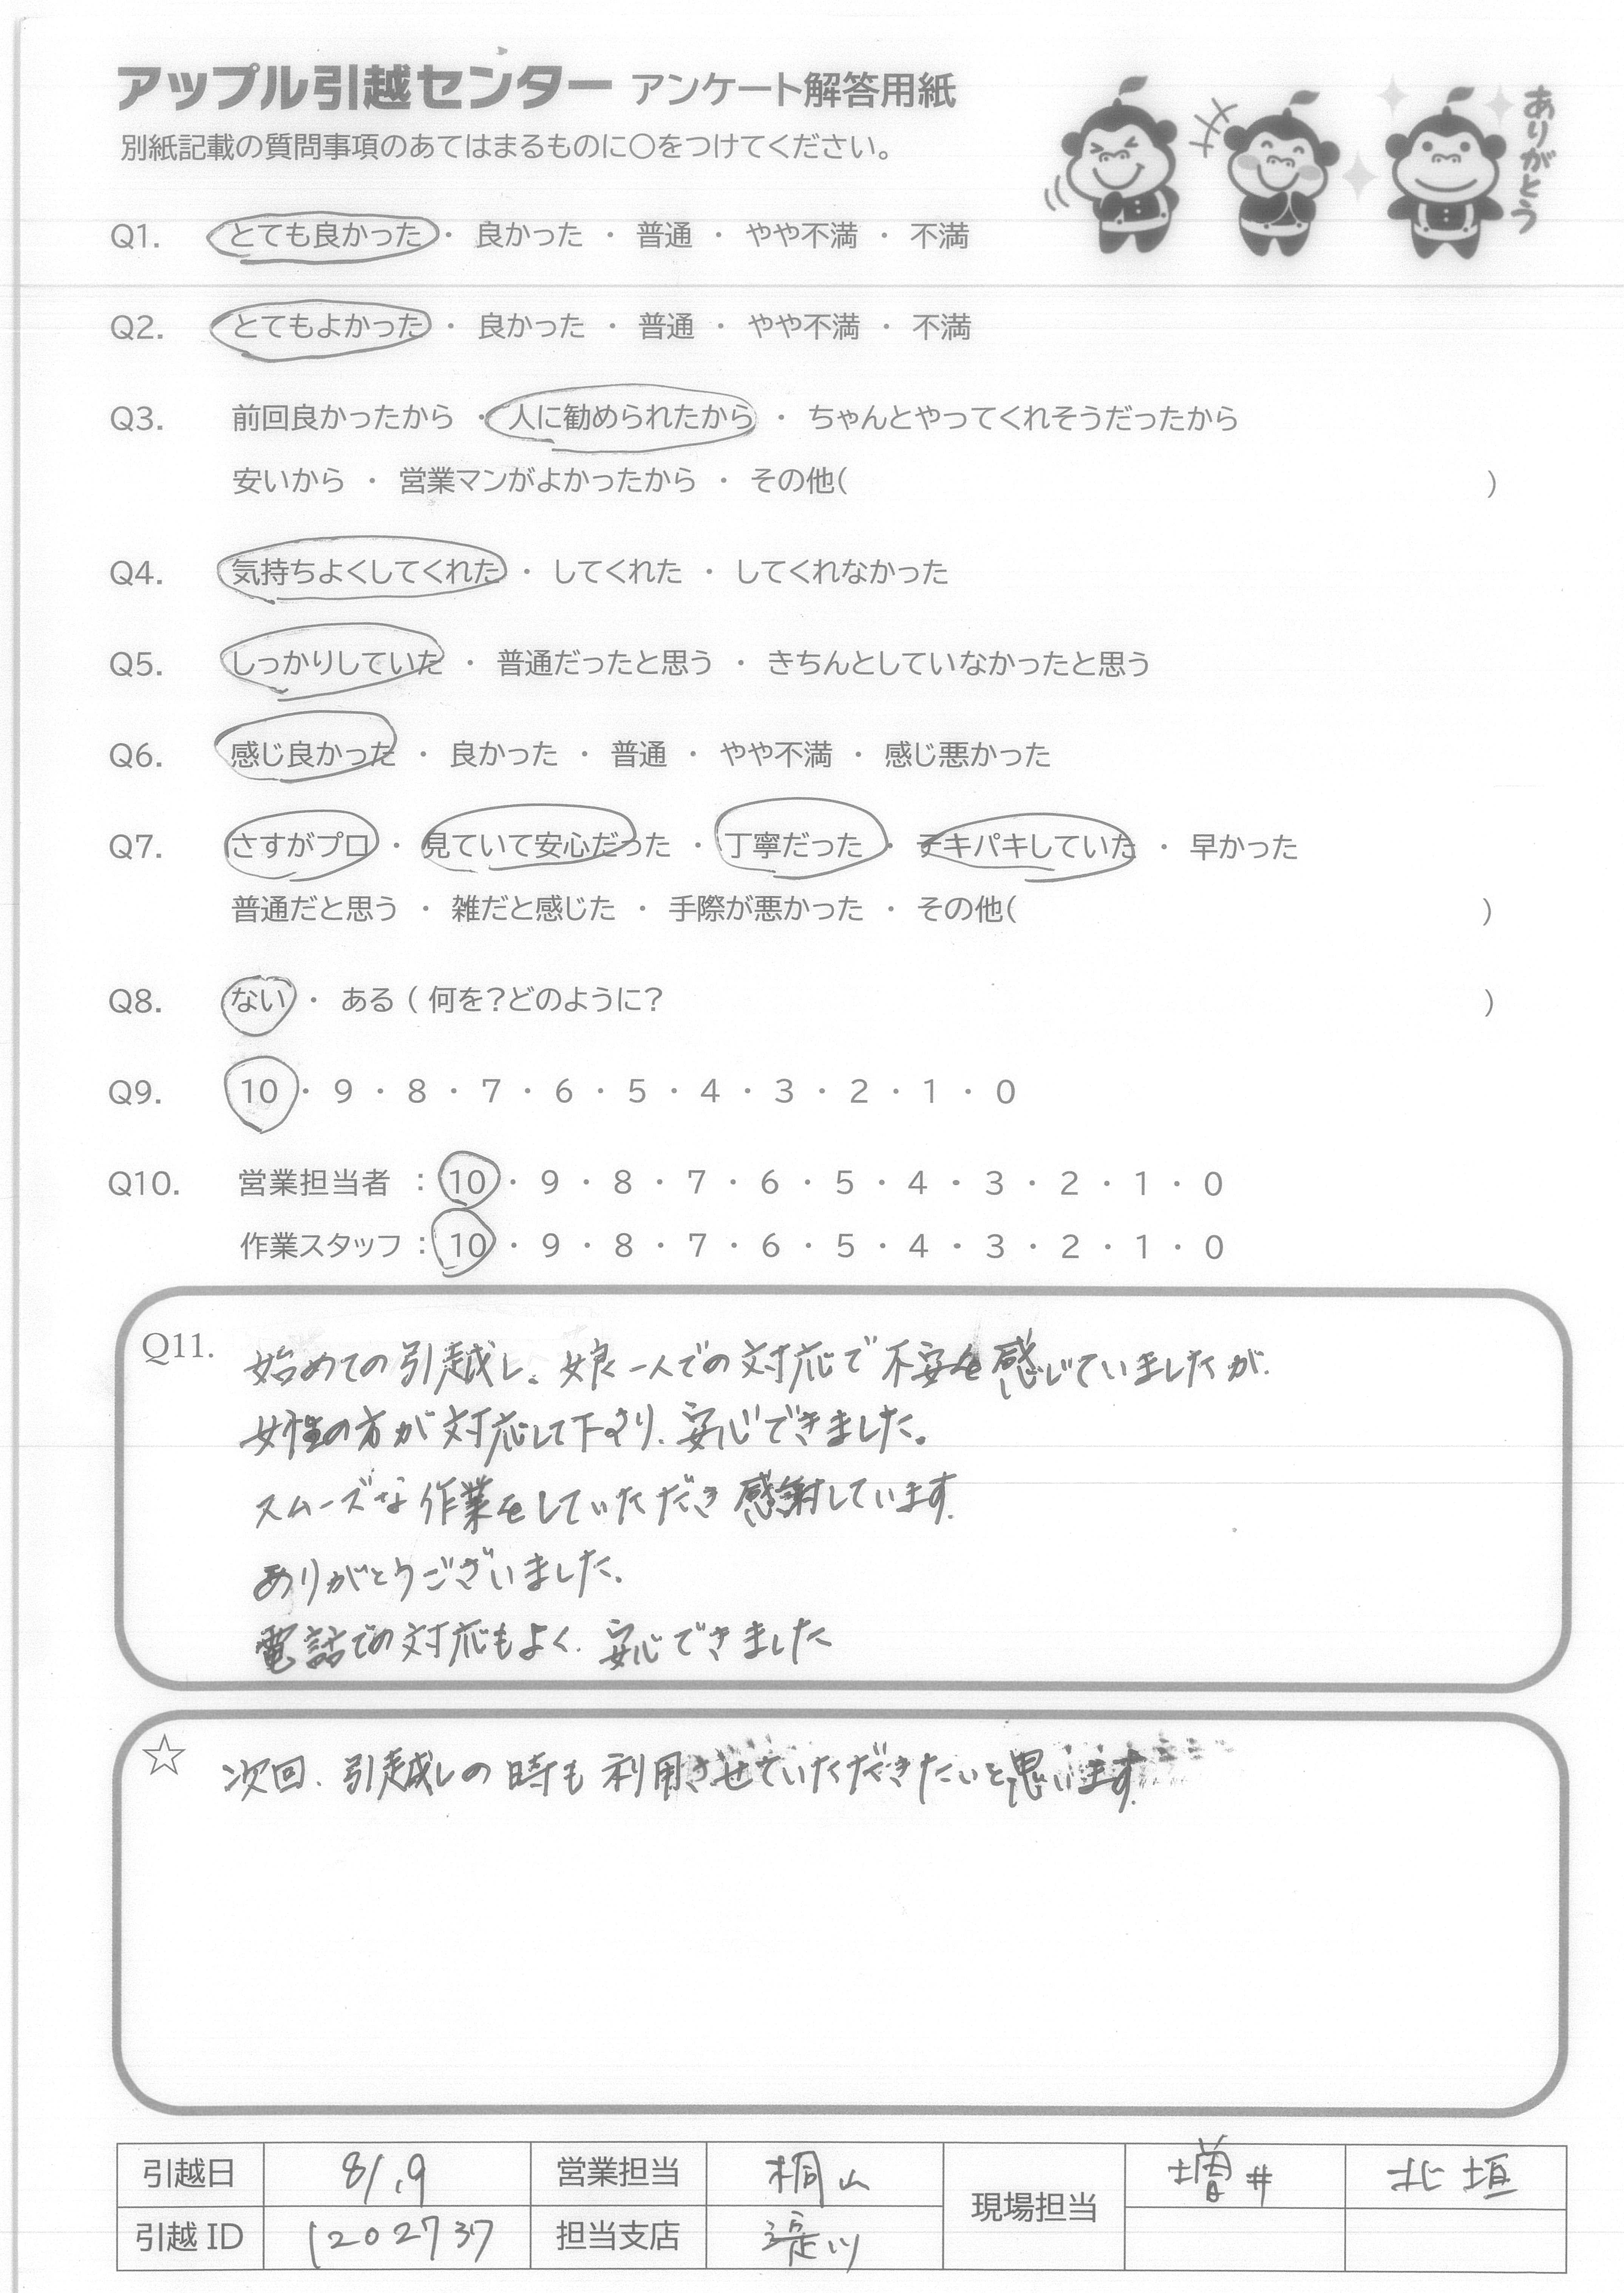 アップル引越センター アンケート解答用紙
ありがとう
別紙記載の質問事項のあてはまるものに○をつけてください。
Q1. とても良かった ・ 良かった ・ 普通 ・ やや不満 ・ 不満
Q2. とてもよかった ・ 良かった ・ 普通 ・ やや不満 ・ 不満
Q3. 前回良かったから ・ 人に勧められたから ・ ちゃんとやってくれそうだったから
安いから ・ 営業マンがよかったから ・ その他( )
Q4. 気持ちよくしてくれた ・ してくれた ・ してくれなかった
Q5. しっかりしていた ・ 普通だったと思う ・ きちんとしていなかったと思う
Q6. 感じ良かった ・ 良かった ・ 普通 ・ やや不満 ・ 感じ悪かった
Q7. さすがプロ ・ 見ていて安心だった ・ 丁寧だった ・ テキパキしていた ・ 早かった
普通だと思う ・ 雑だと感じた ・ 手際が悪かった ・ その他( )
Q8. ない ・ ある ( 何を?どのように? )
Q9. 10 ・ 9 ・ 8 ・ 7 ・ 6 ・ 5 ・ 4 ・ 3 ・ 2 ・ 1 ・ 0
Q10. 営業担当者 : 10 ・ 9 ・ 8 ・ 7 ・ 6 ・ 5 ・ 4 ・ 3 ・ 2 ・ 1 ・ 0
作業スタッフ : 10 ・ 9 ・ 8 ・ 7 ・ 6 ・ 5 ・ 4 ・ 3 ・ 2 ・ 1 ・ 0
Q11. 始めての引越し。娘一人での対応で不安を感じていましたが、
女性の方が対応して下さり、安心できました。
スムーズな作業をしていただき感謝しています。
ありがとうございました。
電話での対応もよく、安心できました
☆ 次回、引越しの時も利用させていただきたいと思います。
引越日 8/.9 営業担当 桐山 現場担当 増井 北垣
引越ID 1202737 担当支店